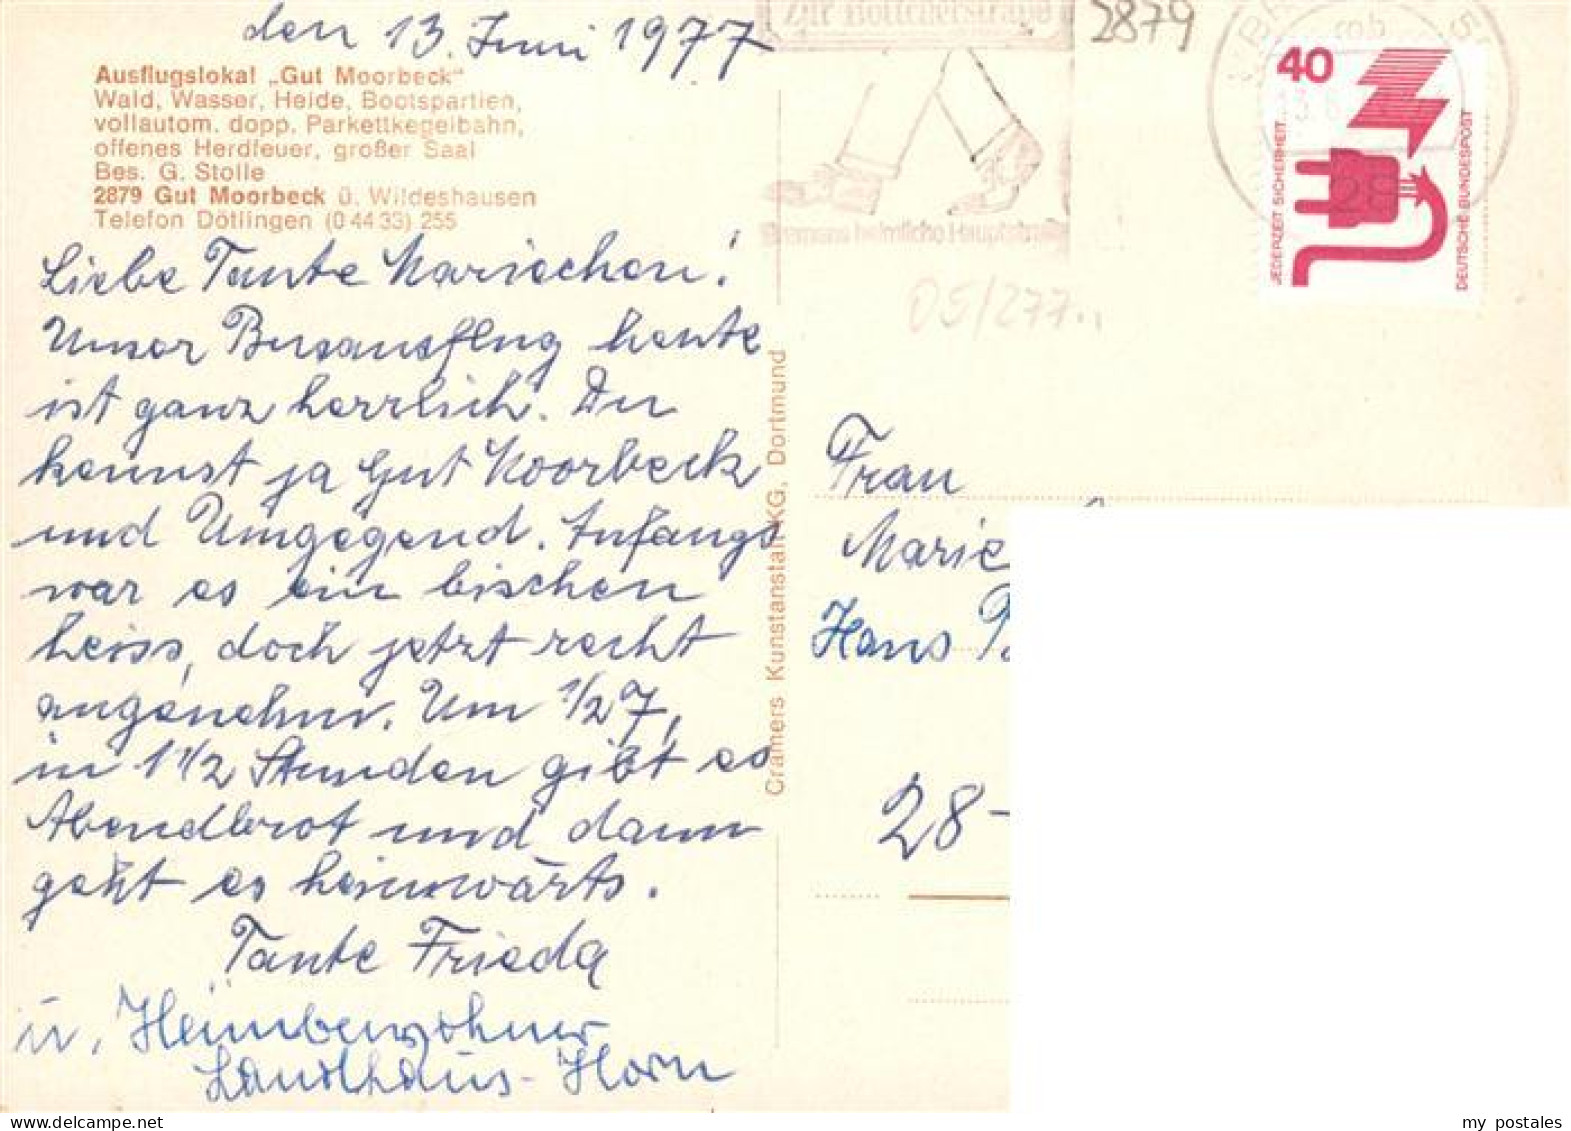 den 13. Juni 1977
Ausflugslokal „Gut Moorbeck“
Wald, Wasser, Heide, Bootspartien,
vollautom. dopp. Parkettkegelbahn,
offenes Herdfeuer, großer Saal
Bes. G. Stolle
2879 Gut Moorbeck ü. Wildeshausen
Telefon Dötlingen (0 44 33) 255
Liebe Tante Mariechen!
Unser Busausflug heute
ist ganz herrlich. Du
kennst ja Gut Moorbeck
und Umgegend. Anfangs
war es ein bischen
heiss, doch jetzt recht
angenehm. Um 1/2 7,
in 1 1/2 Stunden gibt es
Abendbrot und dann
geht es heimwärts.
Tante Frieda
u. Heimbewohner
Landhaus-Horn
Cramers Kunstanstalt KG, Dortmund
Zur Böttcherstraße
Bremens heimliche Hauptstraße
2879
40
JEDERZEIT SICHERHEIT
DEUTSCHE BUNDESPOST
28
05/277..
Frau
Marie
Hans
28-
my postales